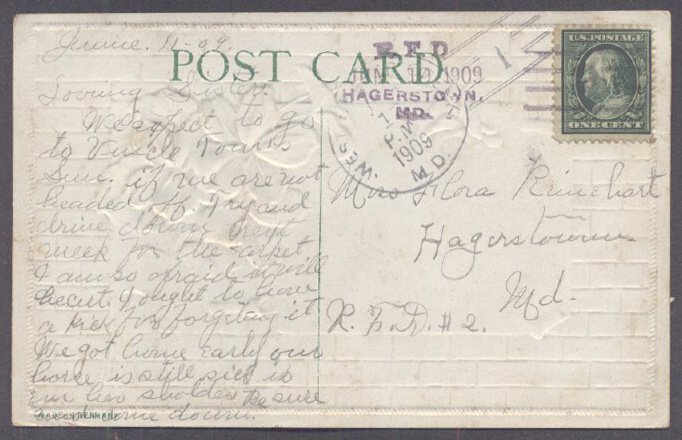 June. 11-09.
POST CARD
U.S. POSTAGE
ONE CENT
R.F.D.
JUN 1909
HAGERSTOWN,
MD.
1
P.M.
1909
M.D.
Loving Sister.
We expect to go
to Uncle Tom's
Sun. if we are not
headed off. Try and
drive down next
week for the carpet.
I am so afraid it will
hecut. I ought to have
a kick for forgetting it
We got home early our
horse is still sick is
in her sholder Be sure
and come down.
Miss Flora Rinehart
Hagerstown
Md.
R.F.D. #2.
MADE IN GERMANY